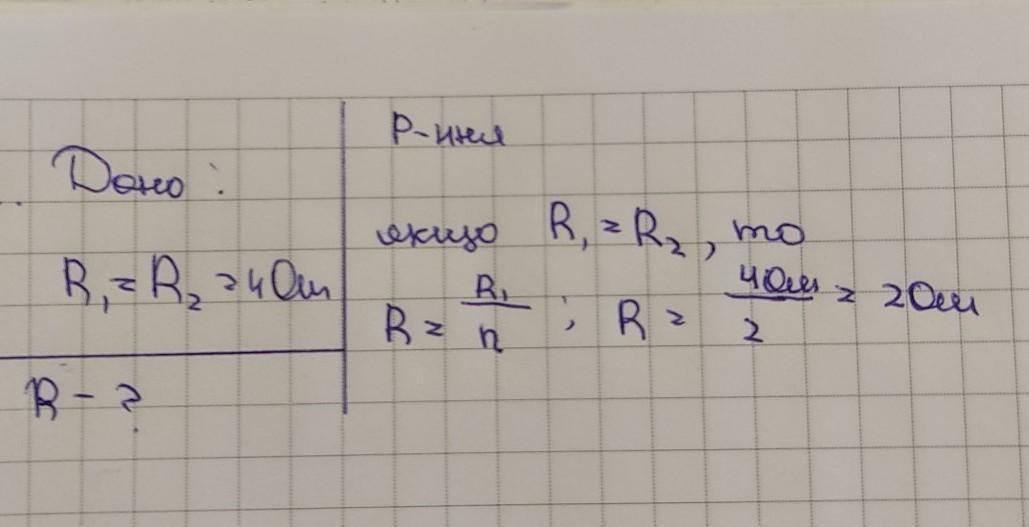 Дано:
R₁ = R₂ = 4Ом
R - ?
Р-ння
якщо R₁ = R₂, то
R = R₁/n ; R = 4Ом/2 = 2Ом